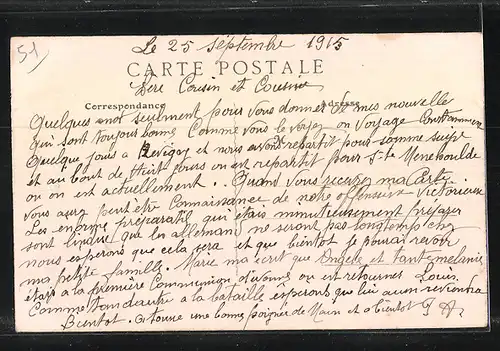 51
Le 25 septembre 1915
CARTE POSTALE
Cousin et Cousine
Correspondance
Adresse
Quelques mot seulment pour vous donner de mes nouvelle
qui sont toujour bonne Comme vous le voyez on voyage Constanment
quelque jours a Revigny et nous avons repartit pour
et au bout de Huit jours on est repartit pour Ste Menehoulde
ou on est actuellement. Quand vous recevrez ma Carte
vous aurez peut être Connaissance de notre offensive Victorieuse
Les préparatif qui étais minutieusement préparer
sont que les allemand ne seront pas longtemp chez
nous esperons que cela sera et que bientot je pourai revoir
ma petite famille. Marie ma écrit que Angele et Tante melanie
étais a la première Communion d'Yvonne ou est retourner Louis
Comme a la bataille esperons que lui aussi reviendra
Bientot. une bonne poignée de Main et a bientot